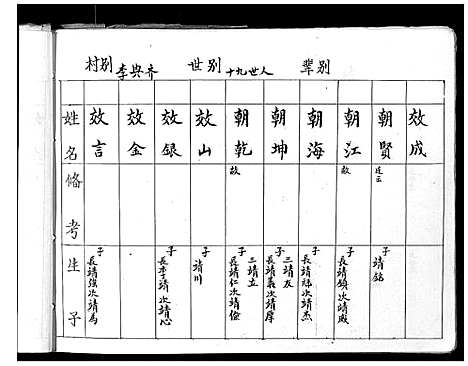 村别 李典齐 世别 十九世人 辈别
姓名 备考 生子
效言 子 長靖強次靖為
效金
效银 子 長李靖次靖心
效山 子 靖川
朝乾 故 子 長靖仁次靖儉 三靖立
朝坤 子 長靖義次靖厚 三靖友
朝海 子 長靖祎次靖杰
朝江 故 子 長靖鎮次靖威
朝賢 子 靖銘
效成